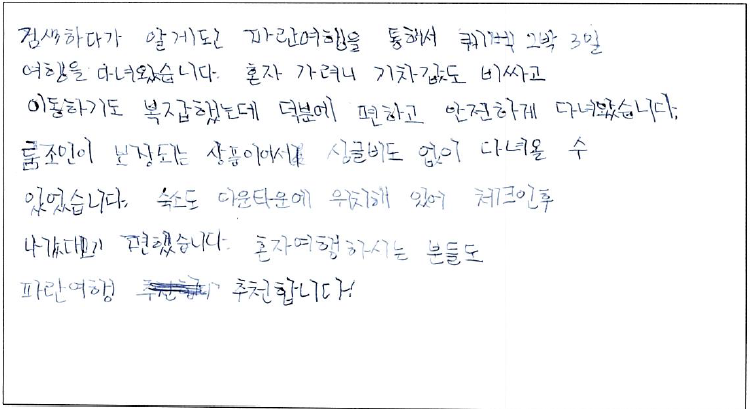 검색하다가 알게되는 파란여행을 통해서 퀘벡 2박 3일
여행을 다녀왔습니다. 혼자 가려니 기차값도 비싸고
이동하기도 복잡했는데 덕분에 편하고 안전하게 다녀왔습니다.
룸조인이 보장되는 상품이어서 싱글비도 없이 다녀올 수
있었습니다. 숙소도 다운타운에 위치해 있어 체크인후
나갔다오기 편했습니다. 혼자여행하시는 분들도
파란여행 추천합니다!